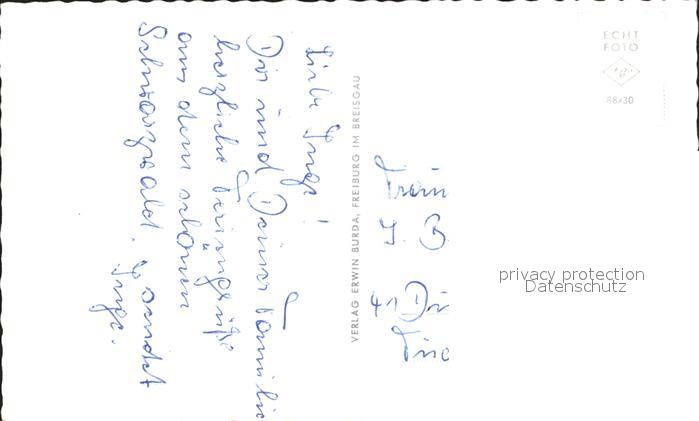 Liebe Inge!
Dir und Deiner Familie
herzliche Feriengrüße
aus dem schönen
Schwarzwald. sendet
Inge.
VERLAG ERWIN BURDA, FREIBURG IM BREISGAU
ECHT
FOTO
88/30
privacy protection
Datenschutz